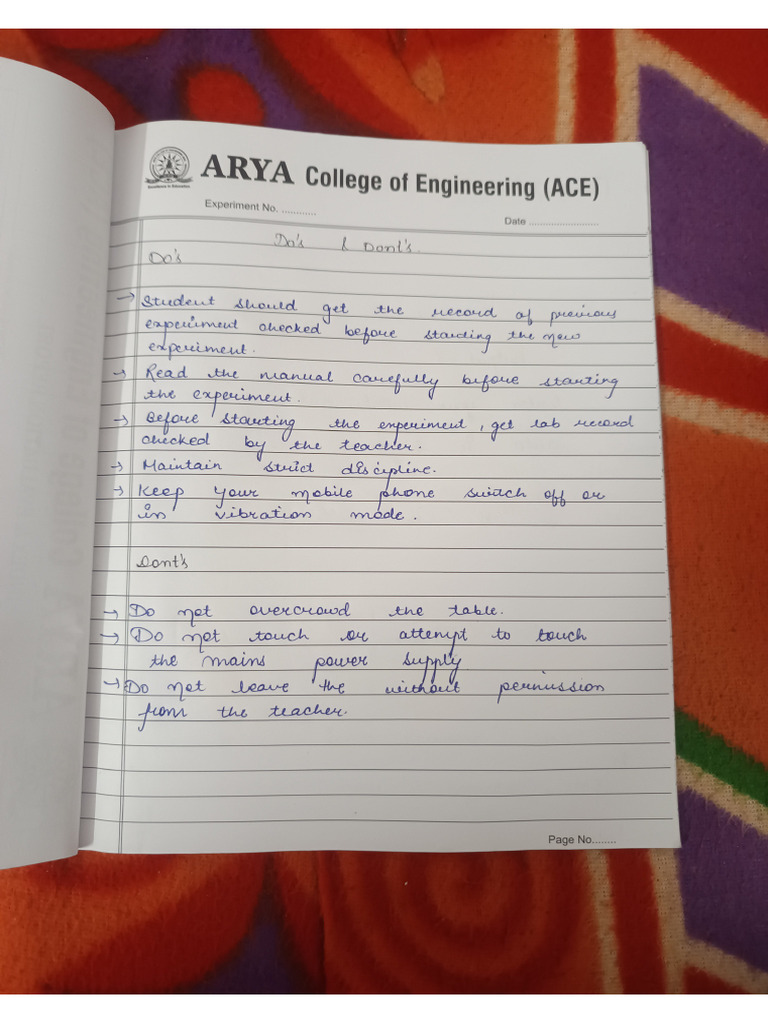 ARYA College of Engineering (ACE)
Excellence in Education
Experiment No. ............
Date ........................
Do's & Dont's.
Do's
→ Student should get the record of previous
experiment checked before starting the new
experiment.
→ Read the manual carefully before starting
the experiment.
→ Before starting the experiment, get lab record
checked by the teacher.
→ Maintain strict discipline.
→ Keep your mobile phone switch off or
in vibration mode.
Dont's
→ Do not overcrowd the table.
→ Do not touch or attempt to touch
the mains power supply
→ Do not leave the without permission
from the teacher.
Page No........